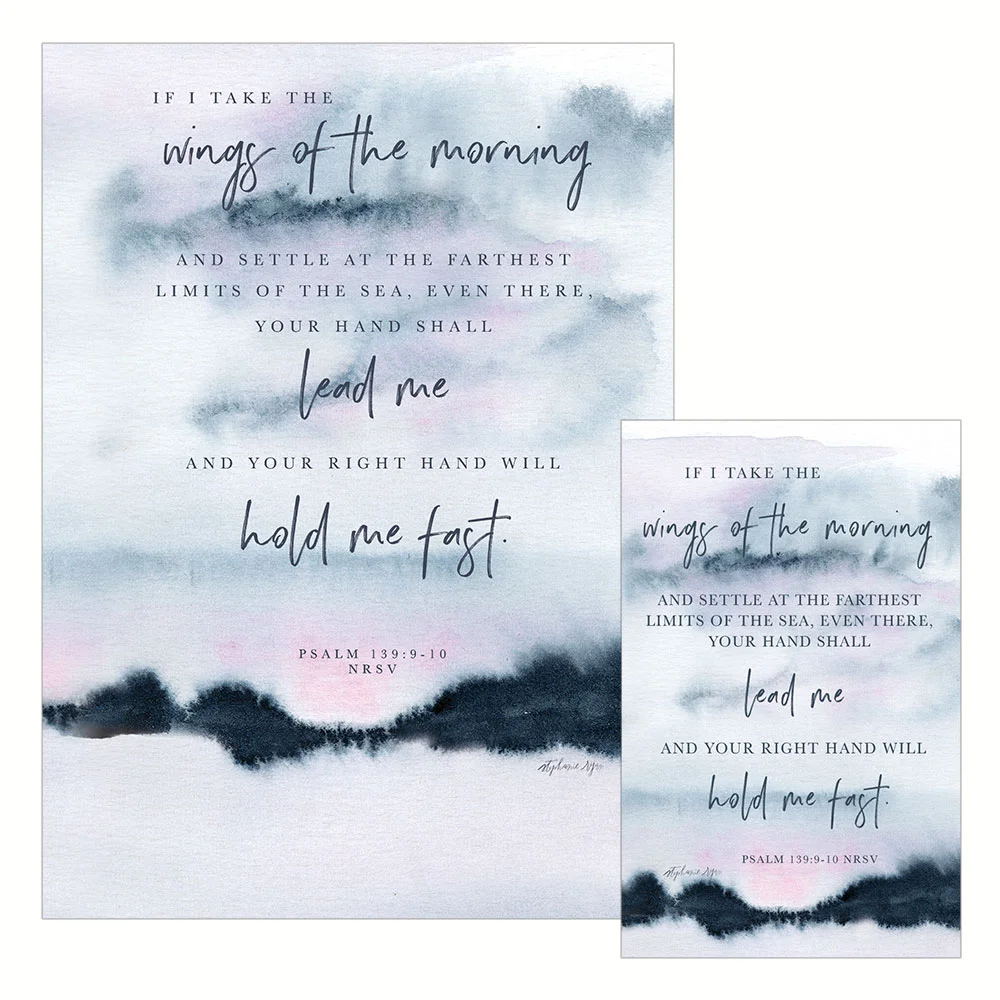 IF I TAKE THE
wings of the morning
AND SETTLE AT THE FARTHEST
LIMITS OF THE SEA, EVEN THERE,
YOUR HAND SHALL
lead me
AND YOUR RIGHT HAND WILL
hold me fast.
PSALM 139:9-10
NRSV
IF I TAKE THE
wings of the morning
AND SETTLE AT THE FARTHEST
LIMITS OF THE SEA, EVEN THERE,
YOUR HAND SHALL
lead me
AND YOUR RIGHT HAND WILL
hold me fast.
PSALM 139:9-10 NRSV